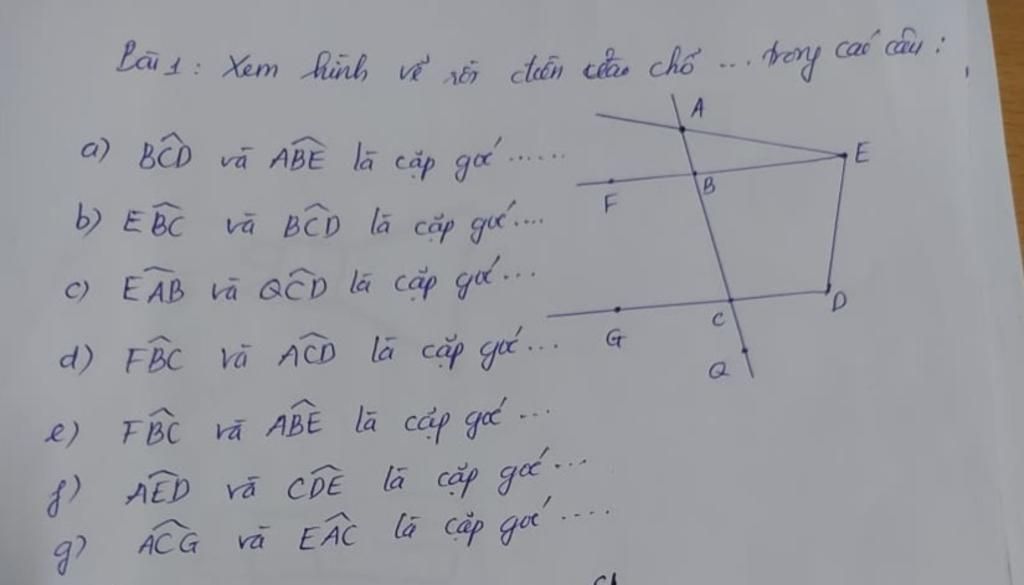 Bài 1: Xem hình vẽ rồi điền vào chỗ ... trong các câu:
a) BCD và ABE là cặp góc ......
b) EBC và BCD là cặp góc ....
c) EAB và QCD là cặp góc ...
d) FBC và ACD là cặp góc ...
e) FBC và ABE là cặp góc ...
f) AED và CDE là cặp góc ...
g) ACG và EAC là cặp góc ....
A
E
B
F
D
C
G
Q